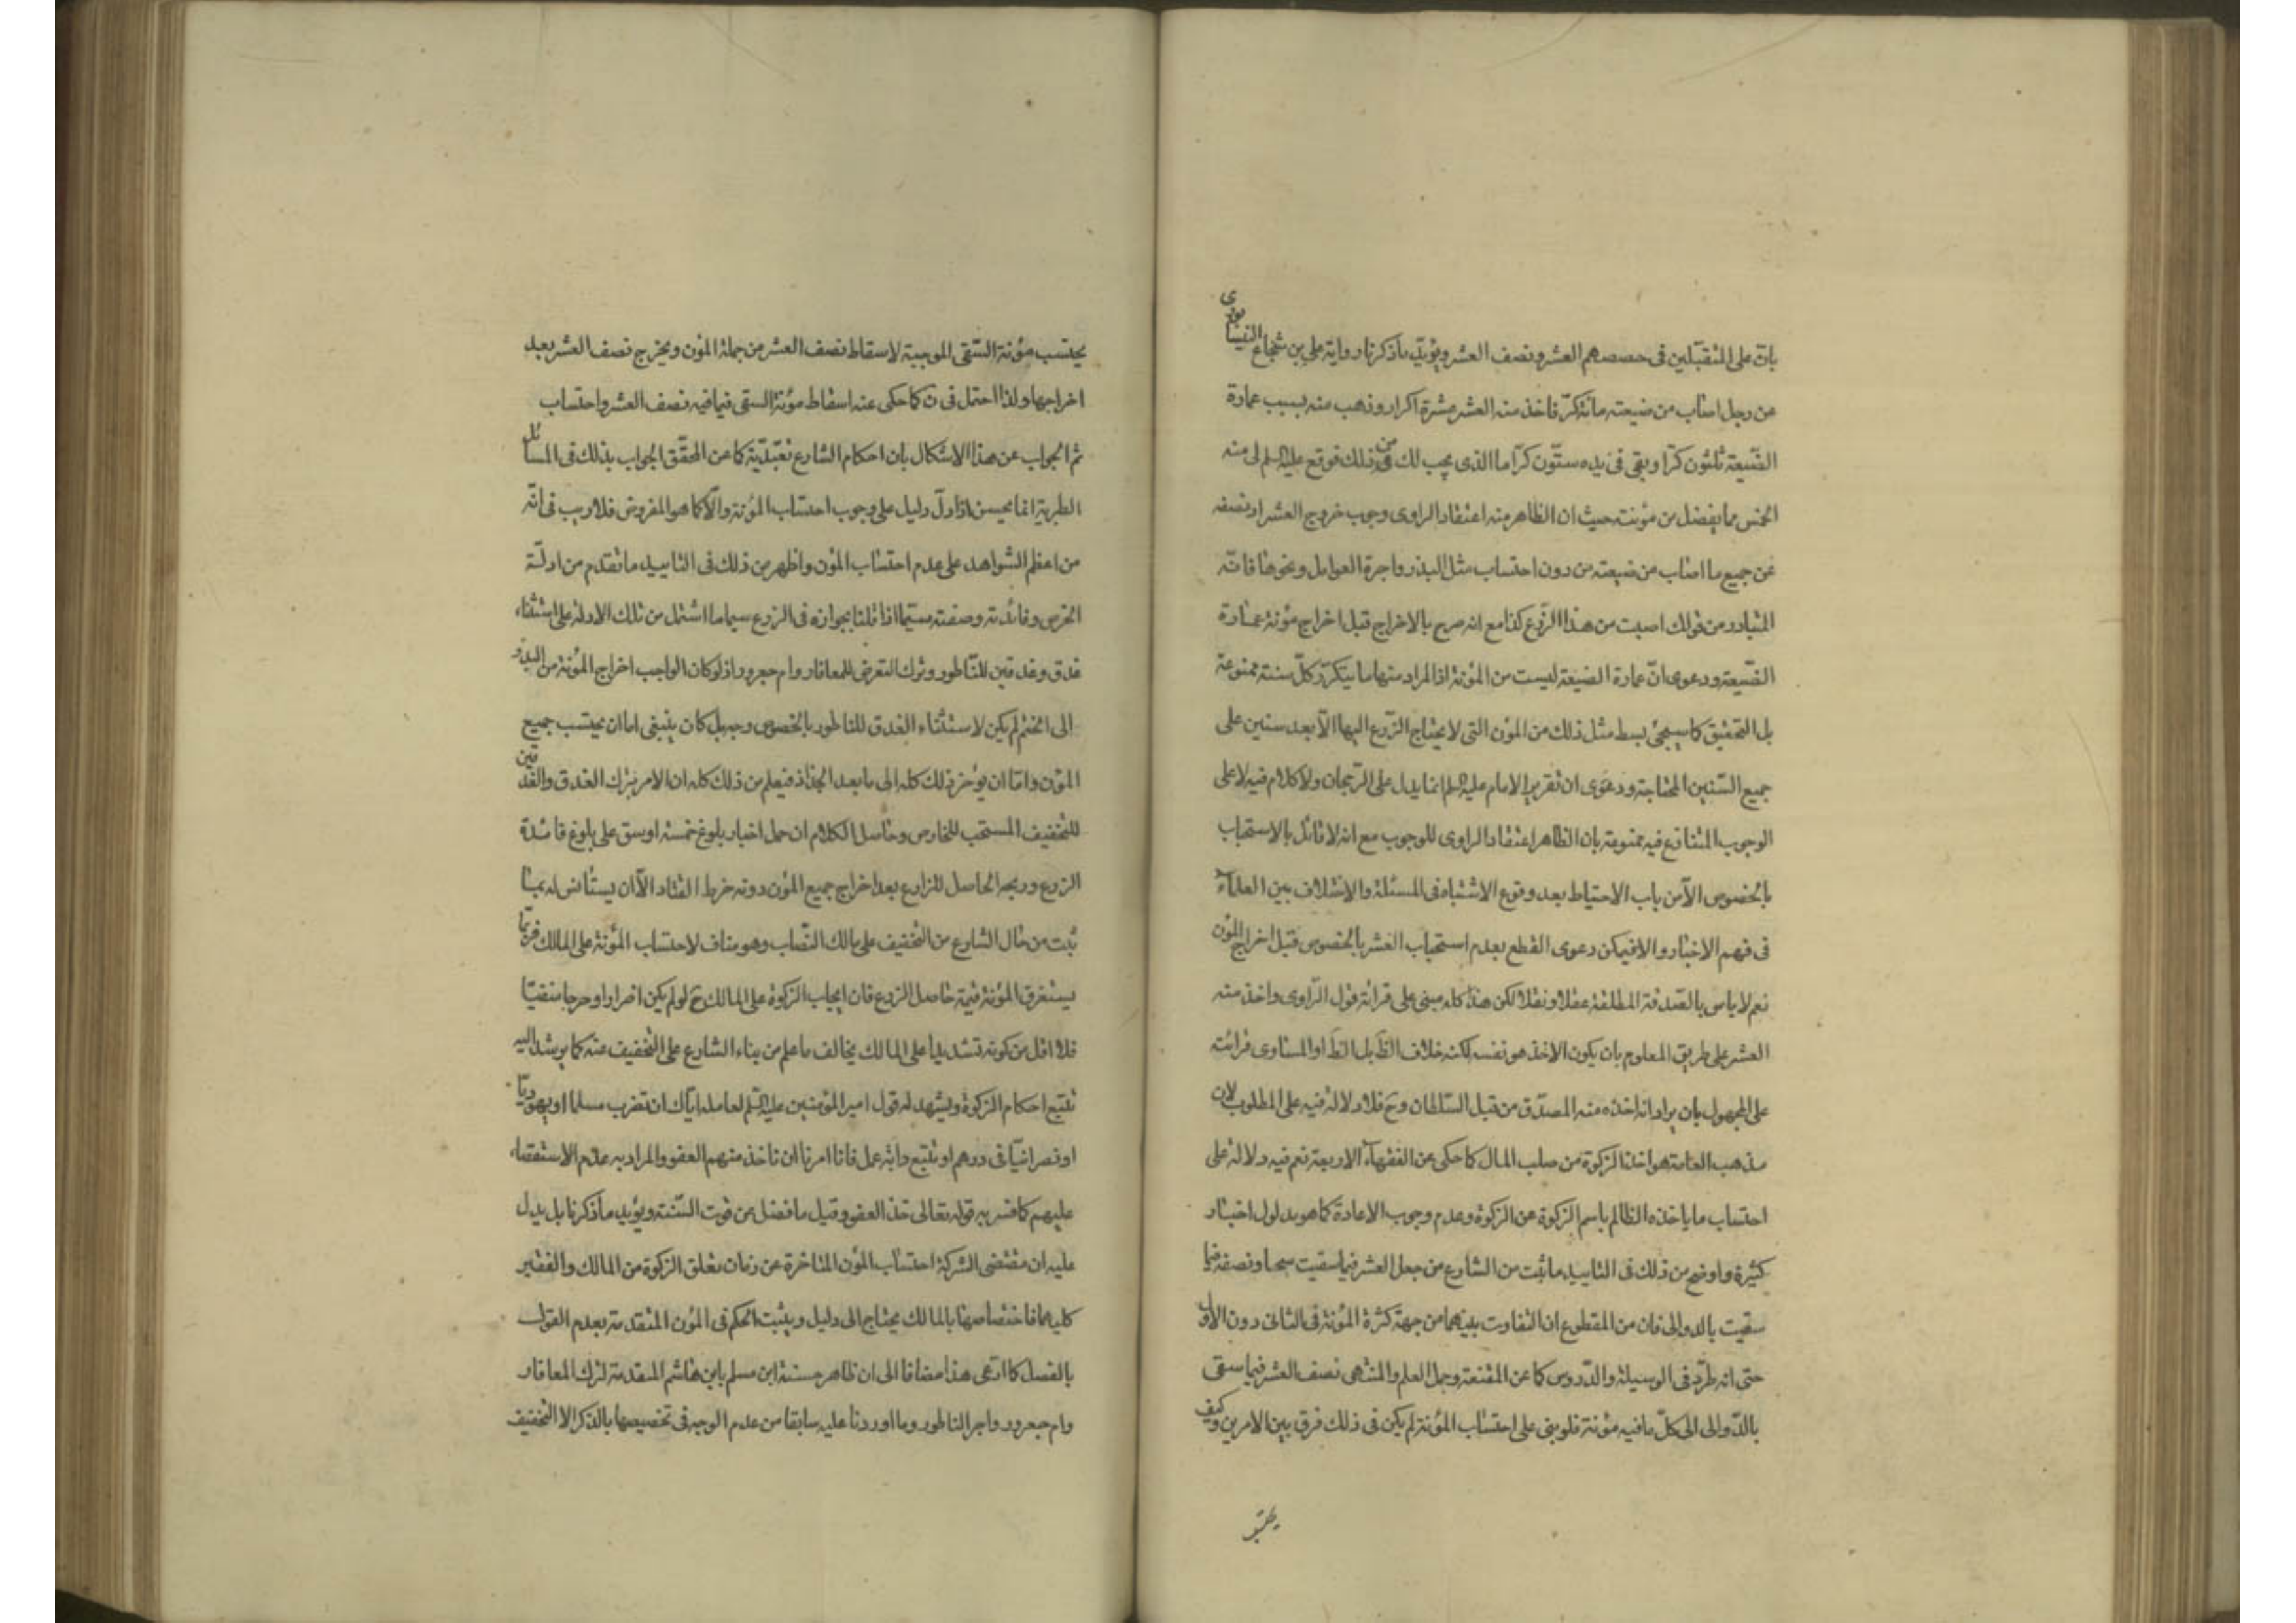 بانّ على المتقبّلين فى حصصهم العشر ونصف العشر ويؤيّد ماذكرنا رواية على بن شجاع النيشابورى
عن رجل اصاب من ضيعته مائة كرّ فاخذ منه العشر عشرة اكرار وذهب منه بسبب عمارة
الضّيعة ثلثون كرّا وبقى فى يده ستّون كرّا ما الذى يجب لك من ذلك فوقع عليه السلم لى منه
الخمس مما يفضل من مؤنته حيث ان الظاهر منه اعتقاد الراوى وجوب خروج العشر او نصفه
عن جميع ما اصاب من ضيعته من دون احتساب مثل البذر واجرة العوامل ونحوها فانّه
المتبادر من قولك اصبت من هذا الزّرع كذا مع انه صريح بالاخراج قبل اخراج مؤنة عمارة
الضّيعة ودعوى انّ عمارة الضيعة ليست من المؤنة اذ المراد منها ما يتكرّر كلّ سنة ممنوعة
بل التحقيق كما سيجئ بسط مثل ذلك من المؤن التى لا يحتاج الزّرع اليها الّا بعد سنين على
جميع السّنين المحتاجة ودعوى ان تقرير الامام عليه السلم انما يدل على الرّجحان ولا كلام فيه لا على
الوجوب المتنازع فيه ممنوعة بان الظاهر اعتقاد الراوى للوجوب مع انه لا قائل بالاستحباب
بالخصوص الّا من باب الاحتياط بعد وقوع الاشتباه فى المسئلة والاختلاف بين العلماء
فى فهم الاخبار والا فيمكن دعوى القطع بعدم استحباب العشر بالخصوص قبل اخراج المؤن
نعم لا باس بالصّدقة المطلقة عقلا ونقلا لكن هذا كله مبنى على قرائة قول الرّاوى واخذ منه
العشر على طريق المعلوم بان يكون الاخذ هو نفسه لكنه خلاف الظَ بل الظَ او المساوى قرائته
على المجهول بان يراد انه اخذه منه المصدّق من قبل السّلطان وحَ فلا دلالة فيه على المطلوب لان
مذهب العامة هو اخذ الزكوة من صلب المال كما حكى عن الفقهاء الاربعة نعم فيه دلالة على
احتساب ما ياخذه الظالم باسم الزكوة عن الزكوة وعدم وجوب الاعادة كما هو مدلول اخبار
كثيرة واوضح من ذلك فى التاييد ما ثبت من الشارع من جعل العشر فيما سقيت سيحا ونصفه فيما
سقيت بالدوالى فان من المقطوع ان التفاوت بينهما من جهة كثرة المؤنة فى الثانى دون الاول
حتى انه طرّد فى الوسيلة والدّروس كما عن المقنعة وجمل العلم والمنتهى نصف العشر فيما سقى
بالدّوالى الى كلّ ما فيه مؤنة فلو بنى على احتساب المؤنة لم يكن فى ذلك فرق بين الامرين وكيف
يحتسب
يحتسب مؤنة السّقى الموجبة لاسقاط نصف العشر من جملة المؤن ويخرج نصف العشر بعد
اخراجها ولذا احتمل فى ن كما حكى عنه اسقاط مؤنة السقى فيما فيه نصف العشر واحتساب
ثم الجواب عن هذا الاشكال بان احكام الشارع تعبّديّة كما عن المحقّق الجواب بذلك فى المسائل
الطبرية انما يحسن اذا دلّ دليل على وجوب احتساب المؤنة والّا كما هو المفروض فلا ريب فى انّه
من اعظم الشواهد على عدم احتساب المؤن واظهر من ذلك فى التاييد ما تقدم من ادلّة
الخرص وفائدته وصفته سيّما اذا قلنا بجوازه فى الزرع سيما ما اشتمل من تلك الادلة على استثناء
غدق وغدقين للنّاطور وترك التعرض للمعافار وام جعرور اذ لو كان الواجب اخراج المؤنة من البذر
الى الختم لم يكن لاستثناء الغدق للناطور بالخصوص وجه بل كان ينبغى اما ان يحتسب جميع
المؤن واما ان يؤخر ذلك كله الى ما بعد الجذاذ فيعلم من ذلك كله ان الامر بترك الغدق والغدقين
للتخفيف المستحب للخارص وحاصل الكلام ان حمل اخبار بلوغ خمسة اوسق على بلوغ فائدة
الزرع وربحه الحاصل للزارع بعد اخراج جميع المؤن دونه خرط القتاد الّا ان يستانس له بما
ثبت من حال الشارع من التخفيف على مالك النّصاب وهو مناف لاحتساب المؤنة على المالك فربّما
يستغرق المؤنة قيمة حاصل الزرع فان ايجاب الزكوة على المالك حَ لو لم يكن اضرارا وحرجا منفيّا
فلا اقل من كونه تشديدا على المالك يخالف ما علم من بناء الشارع على التخفيف عنه كما يرشد اليه
تتبع احكام الزكوة ويشهد له قول امير المؤمنين عليه السّلم لعامله ايّاك ان تضرب مسلما او يهوديّا
او نصرانيّا فى درهم او تتبع دابّة عمل فانا امرنا ان ناخذ منهم العفو والمراد به عدم الاستقصاء
عليهم كما فسر به قوله تعالى خذ العفو وقيل ما فضل عن قوت السّنة ويؤيد ماذكرنا بل يدل
عليه ان مقتضى الشركة احتساب المؤن المتاخرة عن زمان تعلق الزكوة من المالك والفقير
كليهما فاختصاصها بالمالك يحتاج الى دليل ويثبت الحكم فى المؤن المتقدمة بعدم القول
بالفصل كما ادّعى هذا مضافا الى ان ظاهر حسنة ابن مسلم بابن هاشم المتقدمة لترك المعافار
وام جعرور واجر الناطور وما اوردنا عليه سابقا من عدم الوجه فى تخصيصها بالذكر الا التخفيف